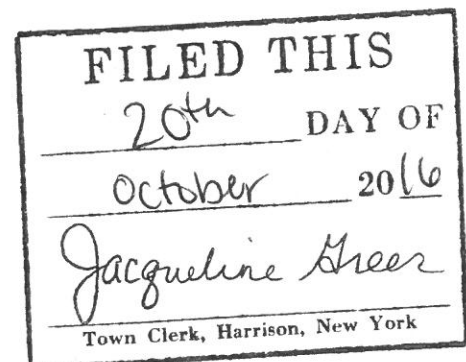 FILED THIS
20th DAY OF
October 2016
Jacqueline Greer
Town Clerk, Harrison, New York